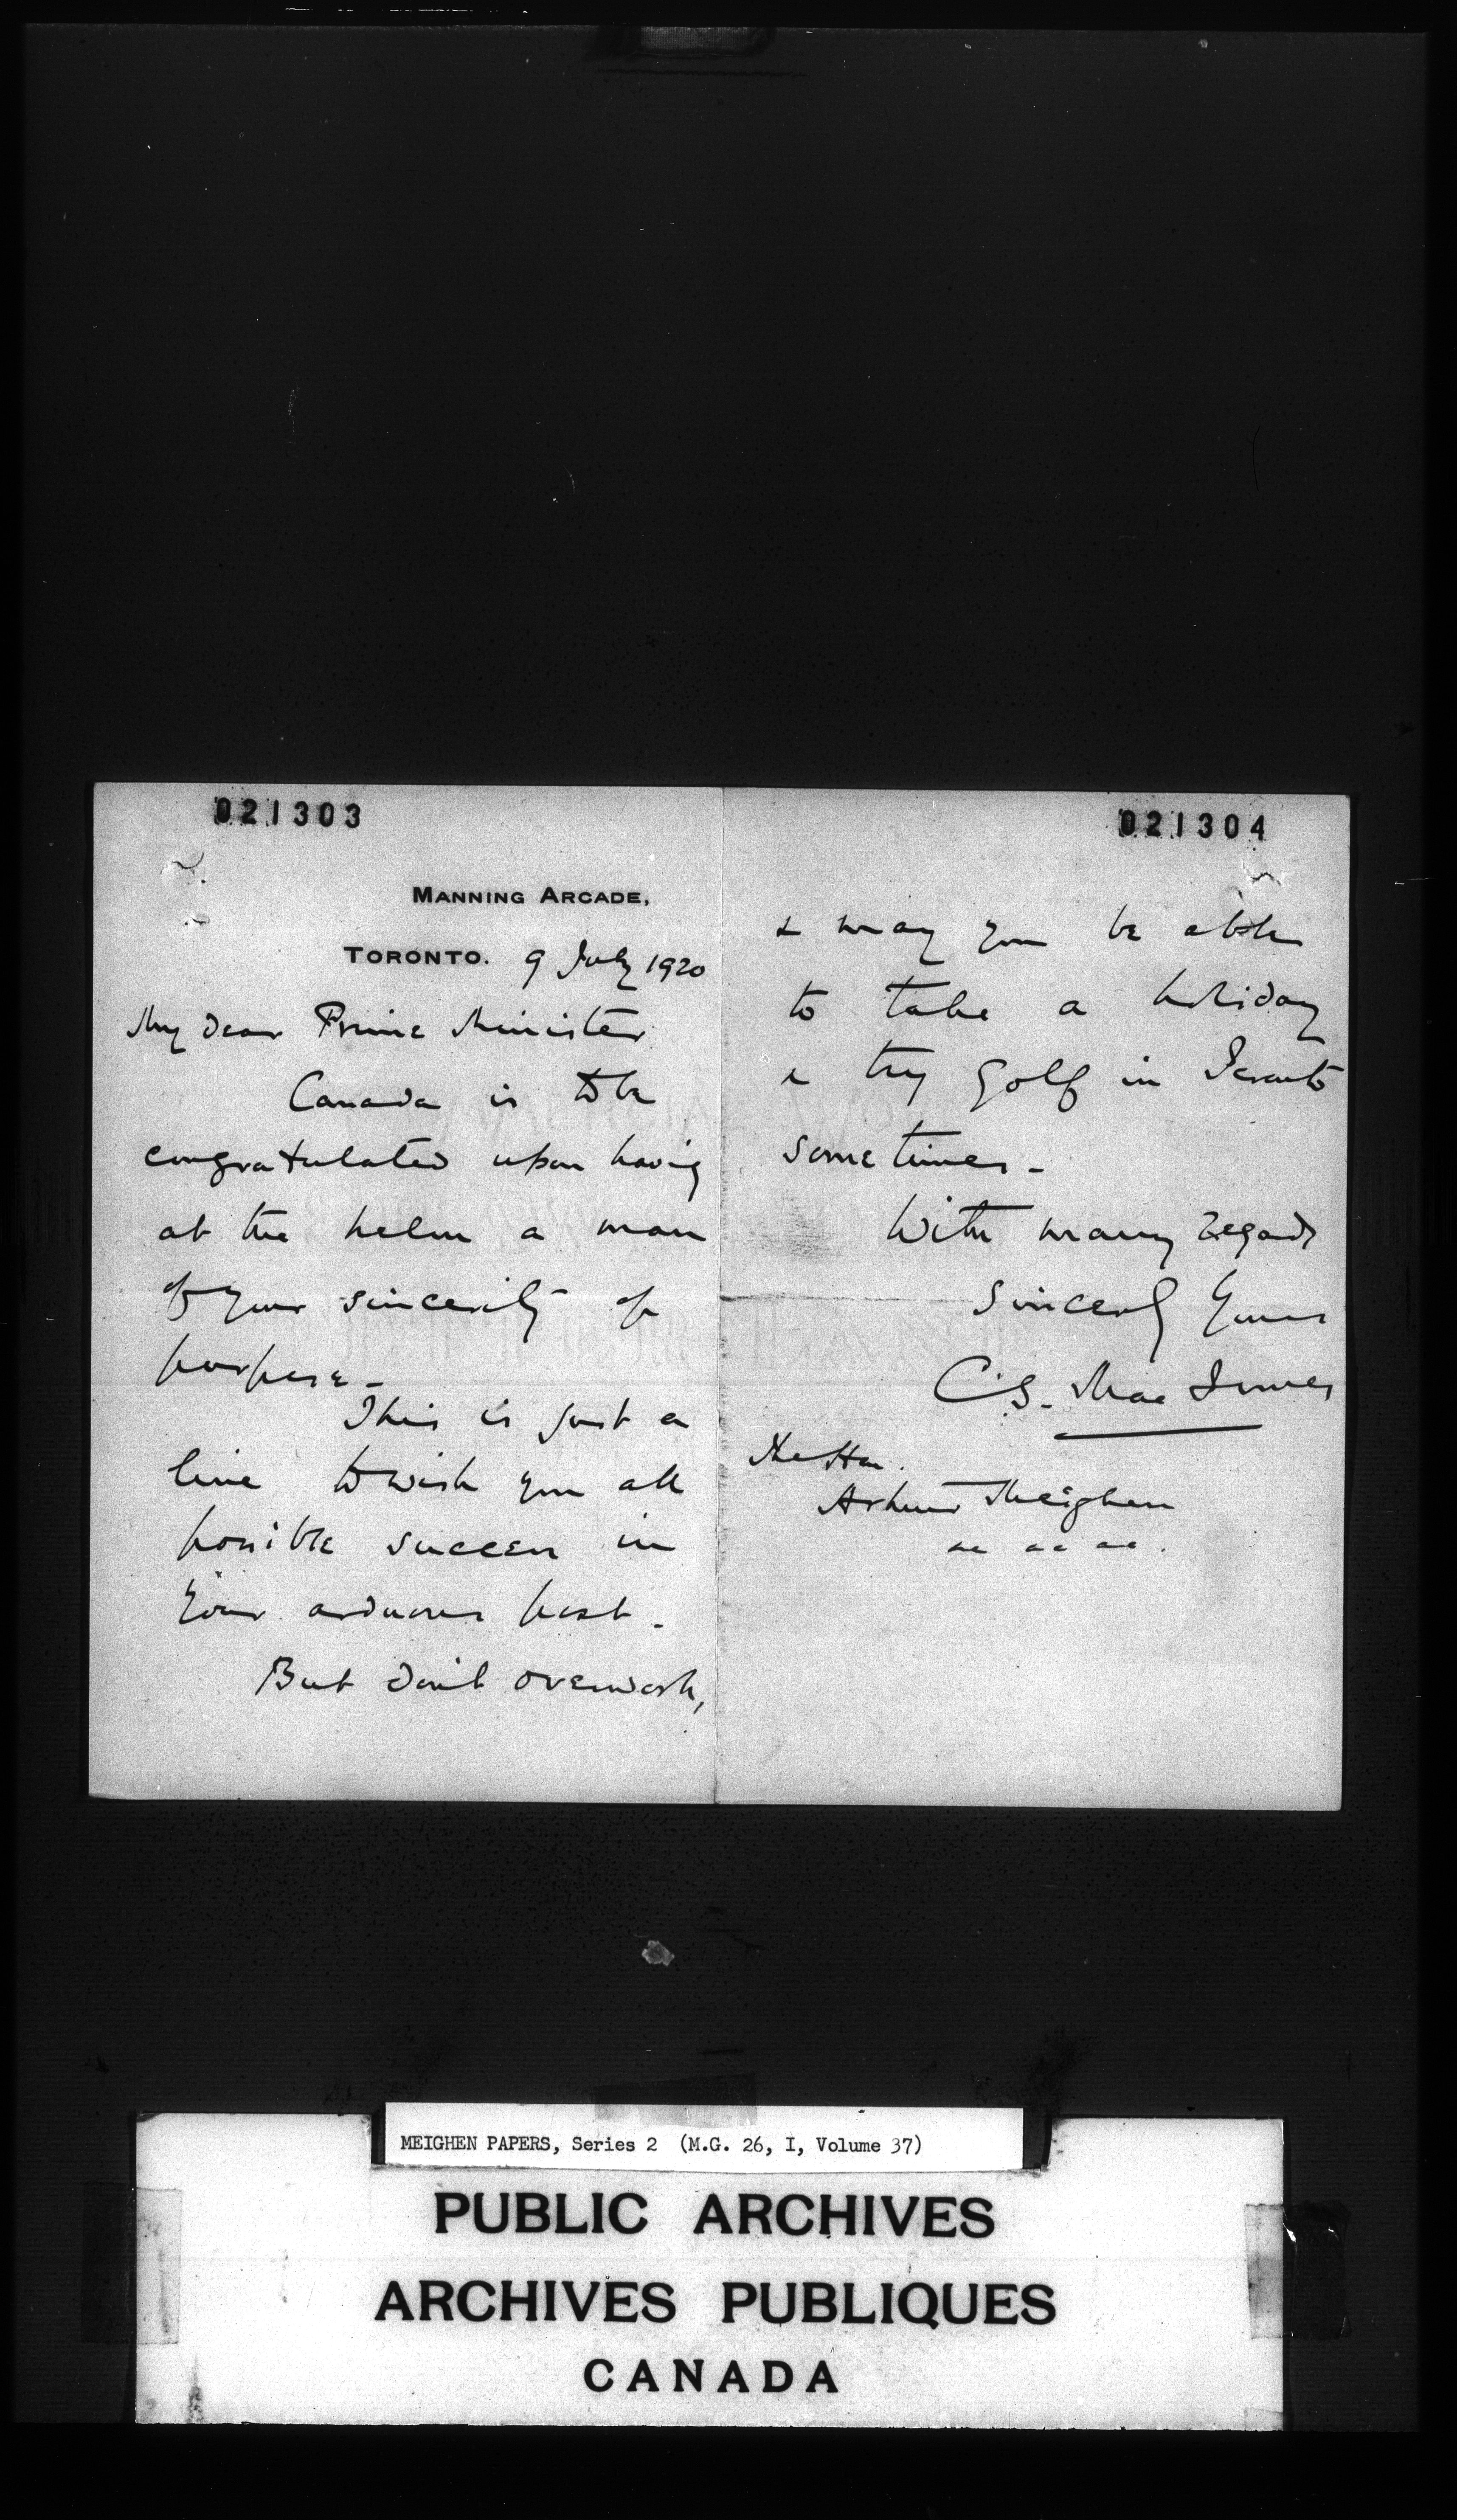 021303
MANNING ARCADE,
TORONTO. 9 July 1920
My dear Prime Minister
Canada is to be
congratulated upon having
at the helm a man
of your sincerity of
purpose -
This is just a
line to wish you all
possible success in
your arduous post -
But don't overwork,
021304
& may you be able
to take a holiday
& try golf in Toronto
sometimes -
With many regards
Sincerely yours
C.S. MacInnes
The Hon.
Arthur Meighen
MEIGHEN PAPERS, Series 2 (M.G. 26, I, Volume 37)
PUBLIC ARCHIVES
ARCHIVES PUBLIQUES
CANADA